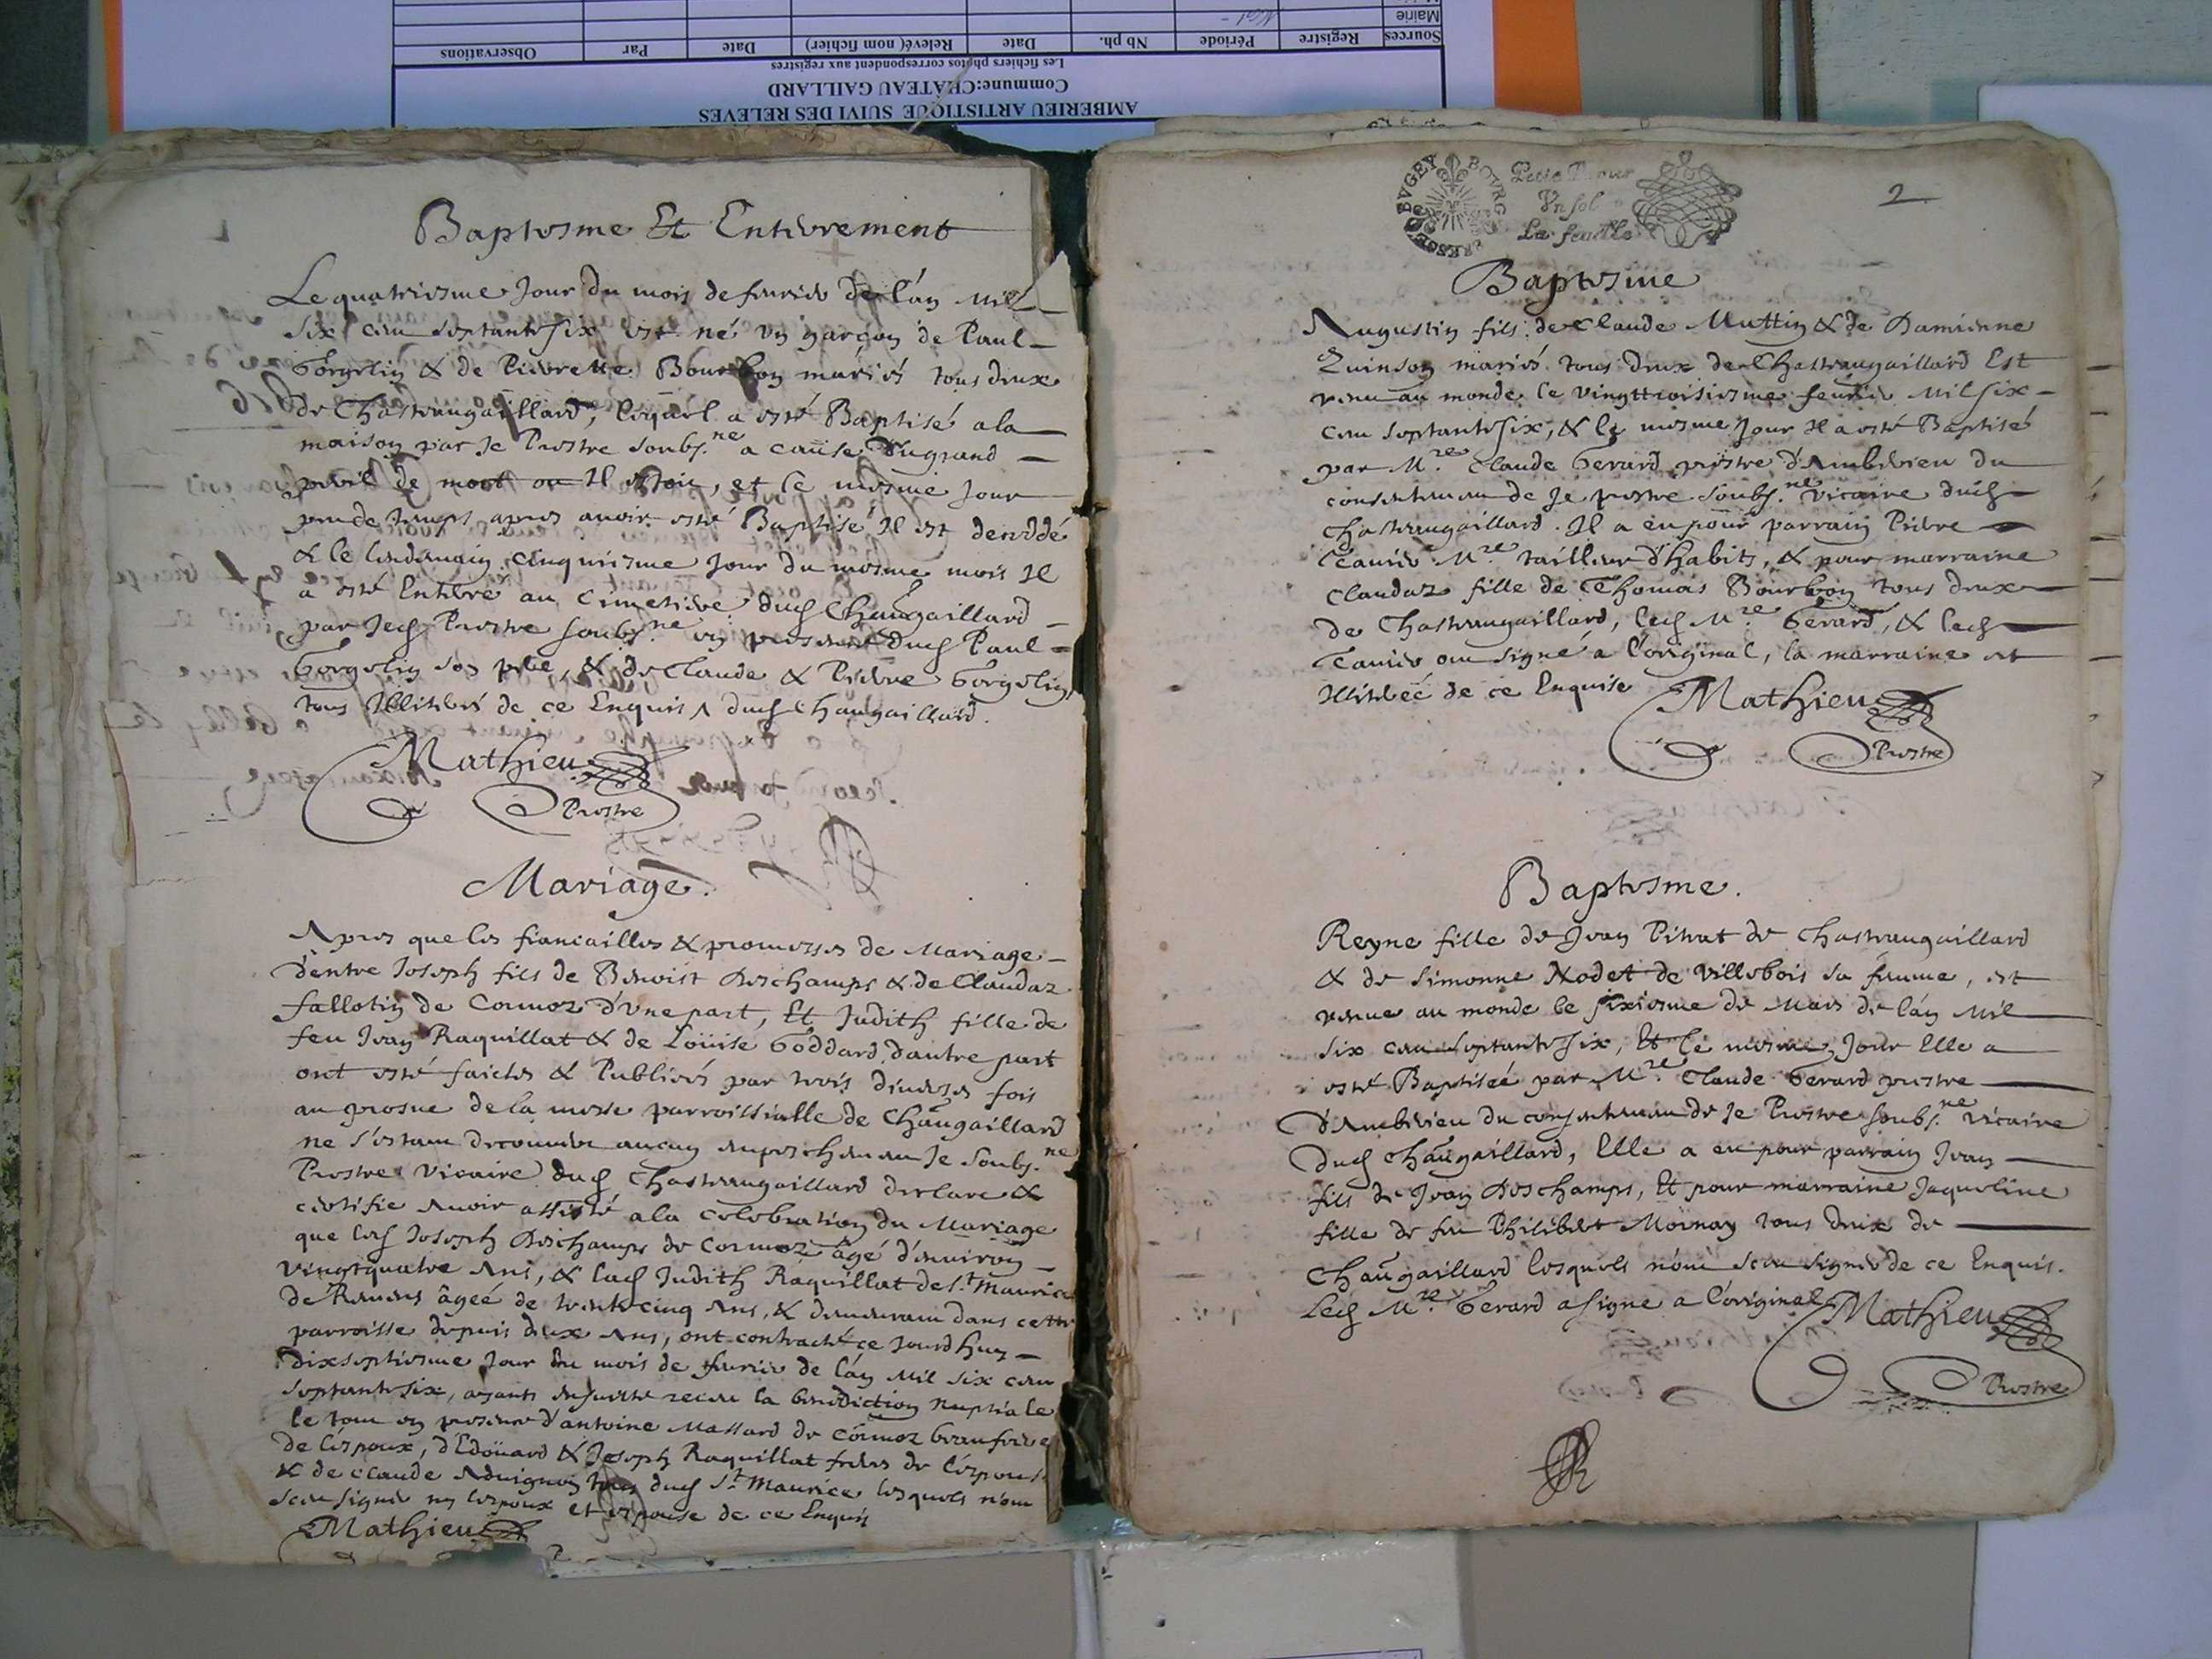 AMBERIEU ARTISTIQUE SUIVI DES RELEVES
Commune: CHÂTEAU GAILLARD
Les fichiers photos correspondent aux registres
Sources Registre Période Nb ph. Date Relevé( nom fichier) Date Par Observations
Mairie
Baptesme Et Enterrement
Le quatriesme Jour du mois de feurier de l'an Mil
six cens septante six est né vn garçon de Paul
Gorgelin & de Pierrette Bourbon mariés tous deux
de Chasteaugaillard, lequel a esté Baptisé a la
maison par Je Prestre soubs.né a cause du grand
peril de mort ou Il estoit, et le mesme Jour
peu de temps apres auoir esté Baptisé Il est decedé
& le lendemain cinquiesme Jour du mesme mois Il
a esté Enterré au Cimetiere dud Chaugaillard
par Jed Prestre soubs.né en presence dud Paul
Gorgelin son pere, & de Claude & Pierre Gorgelin,
tous Illiterés de ce Enquis dud Chaugaillard.
Mathieu
Prestre
Mariage.
Apres que les fiancailles & promesses de Mariage
d'entre Joseph fils de Benoist Deschamps & de Claudaz
fallotin de Cormoz d'vne part, Et Judith fille de
feu Jean Raquillat & de Loüise Goddard d'autre part
ont esté faictes & Publiées par trois diuerses fois
au prosne de la messe parroissialle de Chaugaillard
ne s'estant decouuert aucun empeschement Je soubs.né
Prestre Vicaire dud Chasteaugaillard declare &
certifie auoir assisté a la celebration du Mariage
que led Joseph Deschamps de Cormoz âgé d'enuiron
vingtquatre Ans, & lad Judith Raquillat de St Maurice
de Remens âgée de trente cinq Ans, & demeurant dans cette
parroisse depuis deux Ans, ont contracté ce Jourd'huy
dixseptiesme Jour du mois de feurier de l'an Mil six cens
septante six, ayants ensuitte receu la benediction nuptiale
le tout en presence d'antoine Massard de Cormoz beaufrere
de l'espoux, d'Edoüard & Joseph Raquillat freres de l'espouse
& de Claude tous dud St Maurice lesquels n'ont
sceu signer ny l'espoux et espouse de ce Enquis
Mathieu
2
BRESSE BVGEY BOVRG
Petit P
Vn sol
La feuille
Baptesme
Augustin fils de Claude Muttin & de Damienne
Quinson mariés tous deux de Chasteaugaillard Est
venu au monde le vingttroisiesme feurier Mil six
cens septante six, & le mesme Jour Il a esté Baptisé
par M.re Claude Gerard prestre d'Amberieu du
consentement de Je prestre soubs.né vicaire dud
Chasteaugaillard. Il a eu pour parrain Pierre
M.re tailleur d'habits, & pour marraine
Claudaz fille de Thomas Bourbon tous deux
de Chasteaugaillard, led M.re Gerard, & led
ont signé a l'original, la marraine est
Illiterée de ce Enquise
Mathieu
Prestre
Baptesme.
Reyne fille de Jean Pitrat de Chasteaugaillard
& de Simonne Nodet de Villebois sa femme, est
venue au monde le sixiesme de Mars de l'an Mil
six cens septante six, Et le mesme Jour Elle a
esté Baptiseé par M.re Claude Gerard prestre
d'Amberieu du consentement de Je Prestre soubs.né vicaire
dud Chaugaillard, Elle a eu pour parrain Jean
fils de Jean Deschamps, Et pour marraine Jaqueline
fille de feu Philibert Moinay tous deux de
Chaugaillard lesquels n'ont sceu signer de ce Enquis.
Led M.re Gerard a signe a l'original
Mathieu
Prestre